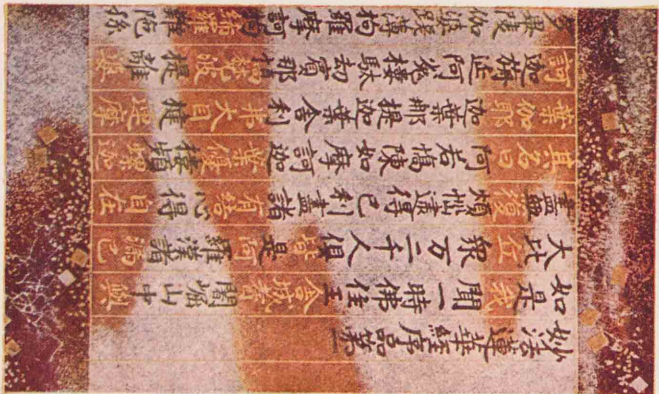 妙法蓮華經序品第一
如是我聞一時佛住王舍城耆闍崛山中與
大比丘衆万二千人俱皆是阿羅漢諸漏已
盡無復煩惱逮得己利盡諸有結心得自在
其名曰阿若憍陳如摩訶迦葉優樓頻螺迦
葉伽耶迦葉那提迦葉舍利弗大目揵連摩
訶迦旃延阿㝹樓馱劫賓那憍梵波提離婆
多畢陵伽婆蹉薄拘羅摩訶拘絺羅難陀孫